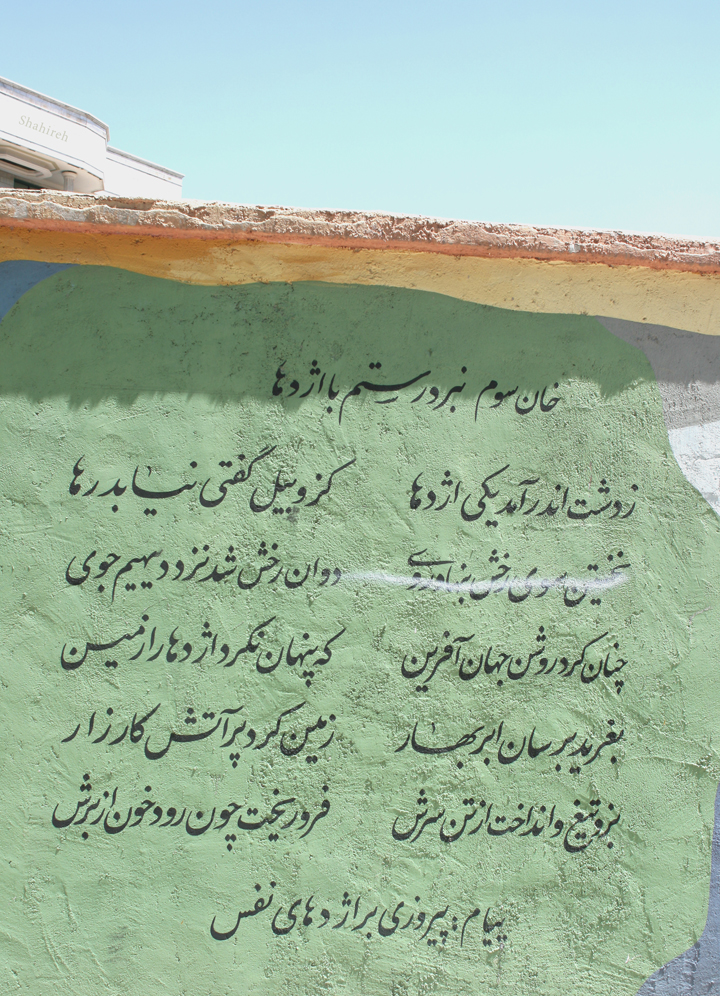 Shahireh
خان سوم نبرد رستم با اژدها
ز دشت اندر آمد یکی اژدها کزو پیل گفتی نیابد رها
نخستین سوی رخش بنهاد روی دوان رخش شد نزد دیهیم جوی
چنان کرد روشن جهان آفرین که پنهان نکرد اژدها را زمین
بغرید بر سان ابر بهار زمین کرد پر آتش کارزار
بزد تیغ و انداخت از تن سرش فرو ریخت چون رود خون از برش
پیام : پیروزی بر اژدهای نفس